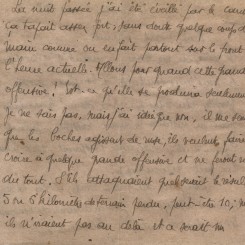 La nuit passée j'ai été éveillé par le cano
ça tapait assez fort, sans doute quelque coup d
main comme on en fait partout sur le front
l'heure actuelle. Allons pour quand cette grand
offensive ! Est-ce qu'elle se produira seulement
je ne sais pas, mais j'ai idée que non, il me sem
que les Boches agissent de ruse, ils veulent faire
croire à quelque grande offensive et ne feront
du tout. S'ils attaquaient quel serait le résul
5 ou 6 kilomètres de terrain perdu, peut-être 10, m
ils n'iraient pas au delà et ça serait